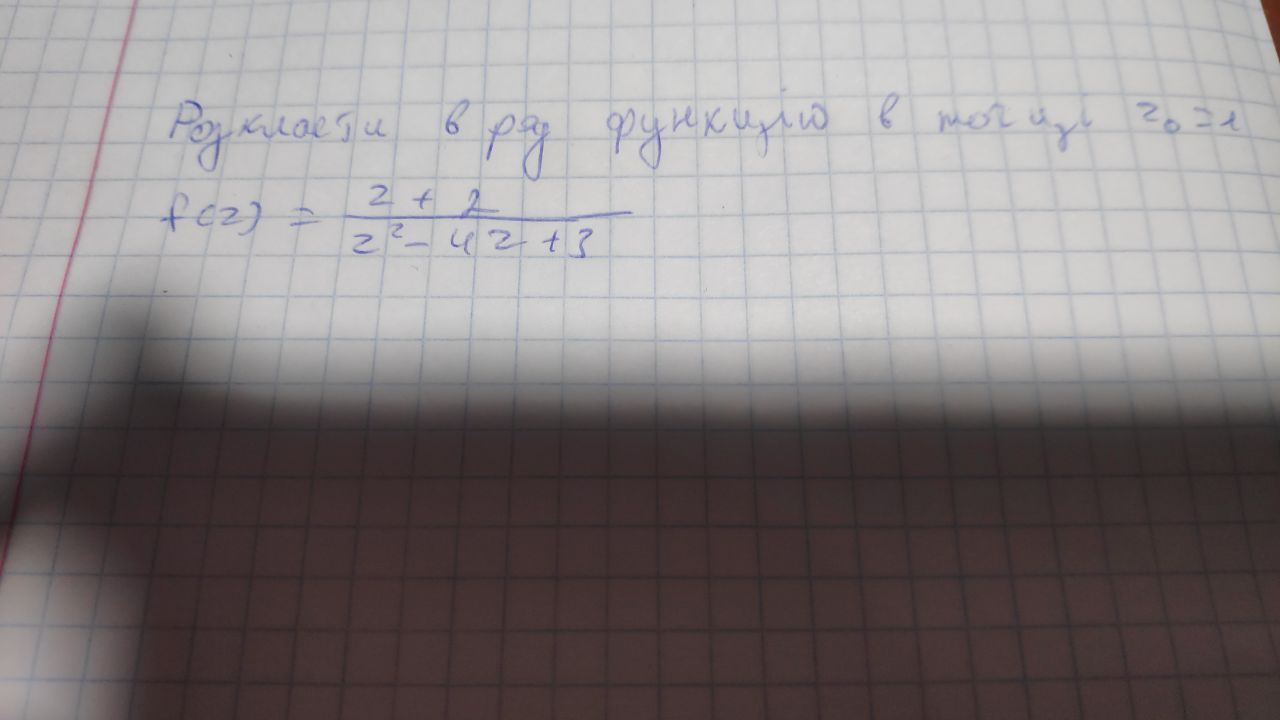 Розкласти в ряд функцію в точці z₀ = 1
f(z) = \frac{z + 2}{z² - 4z + 3}